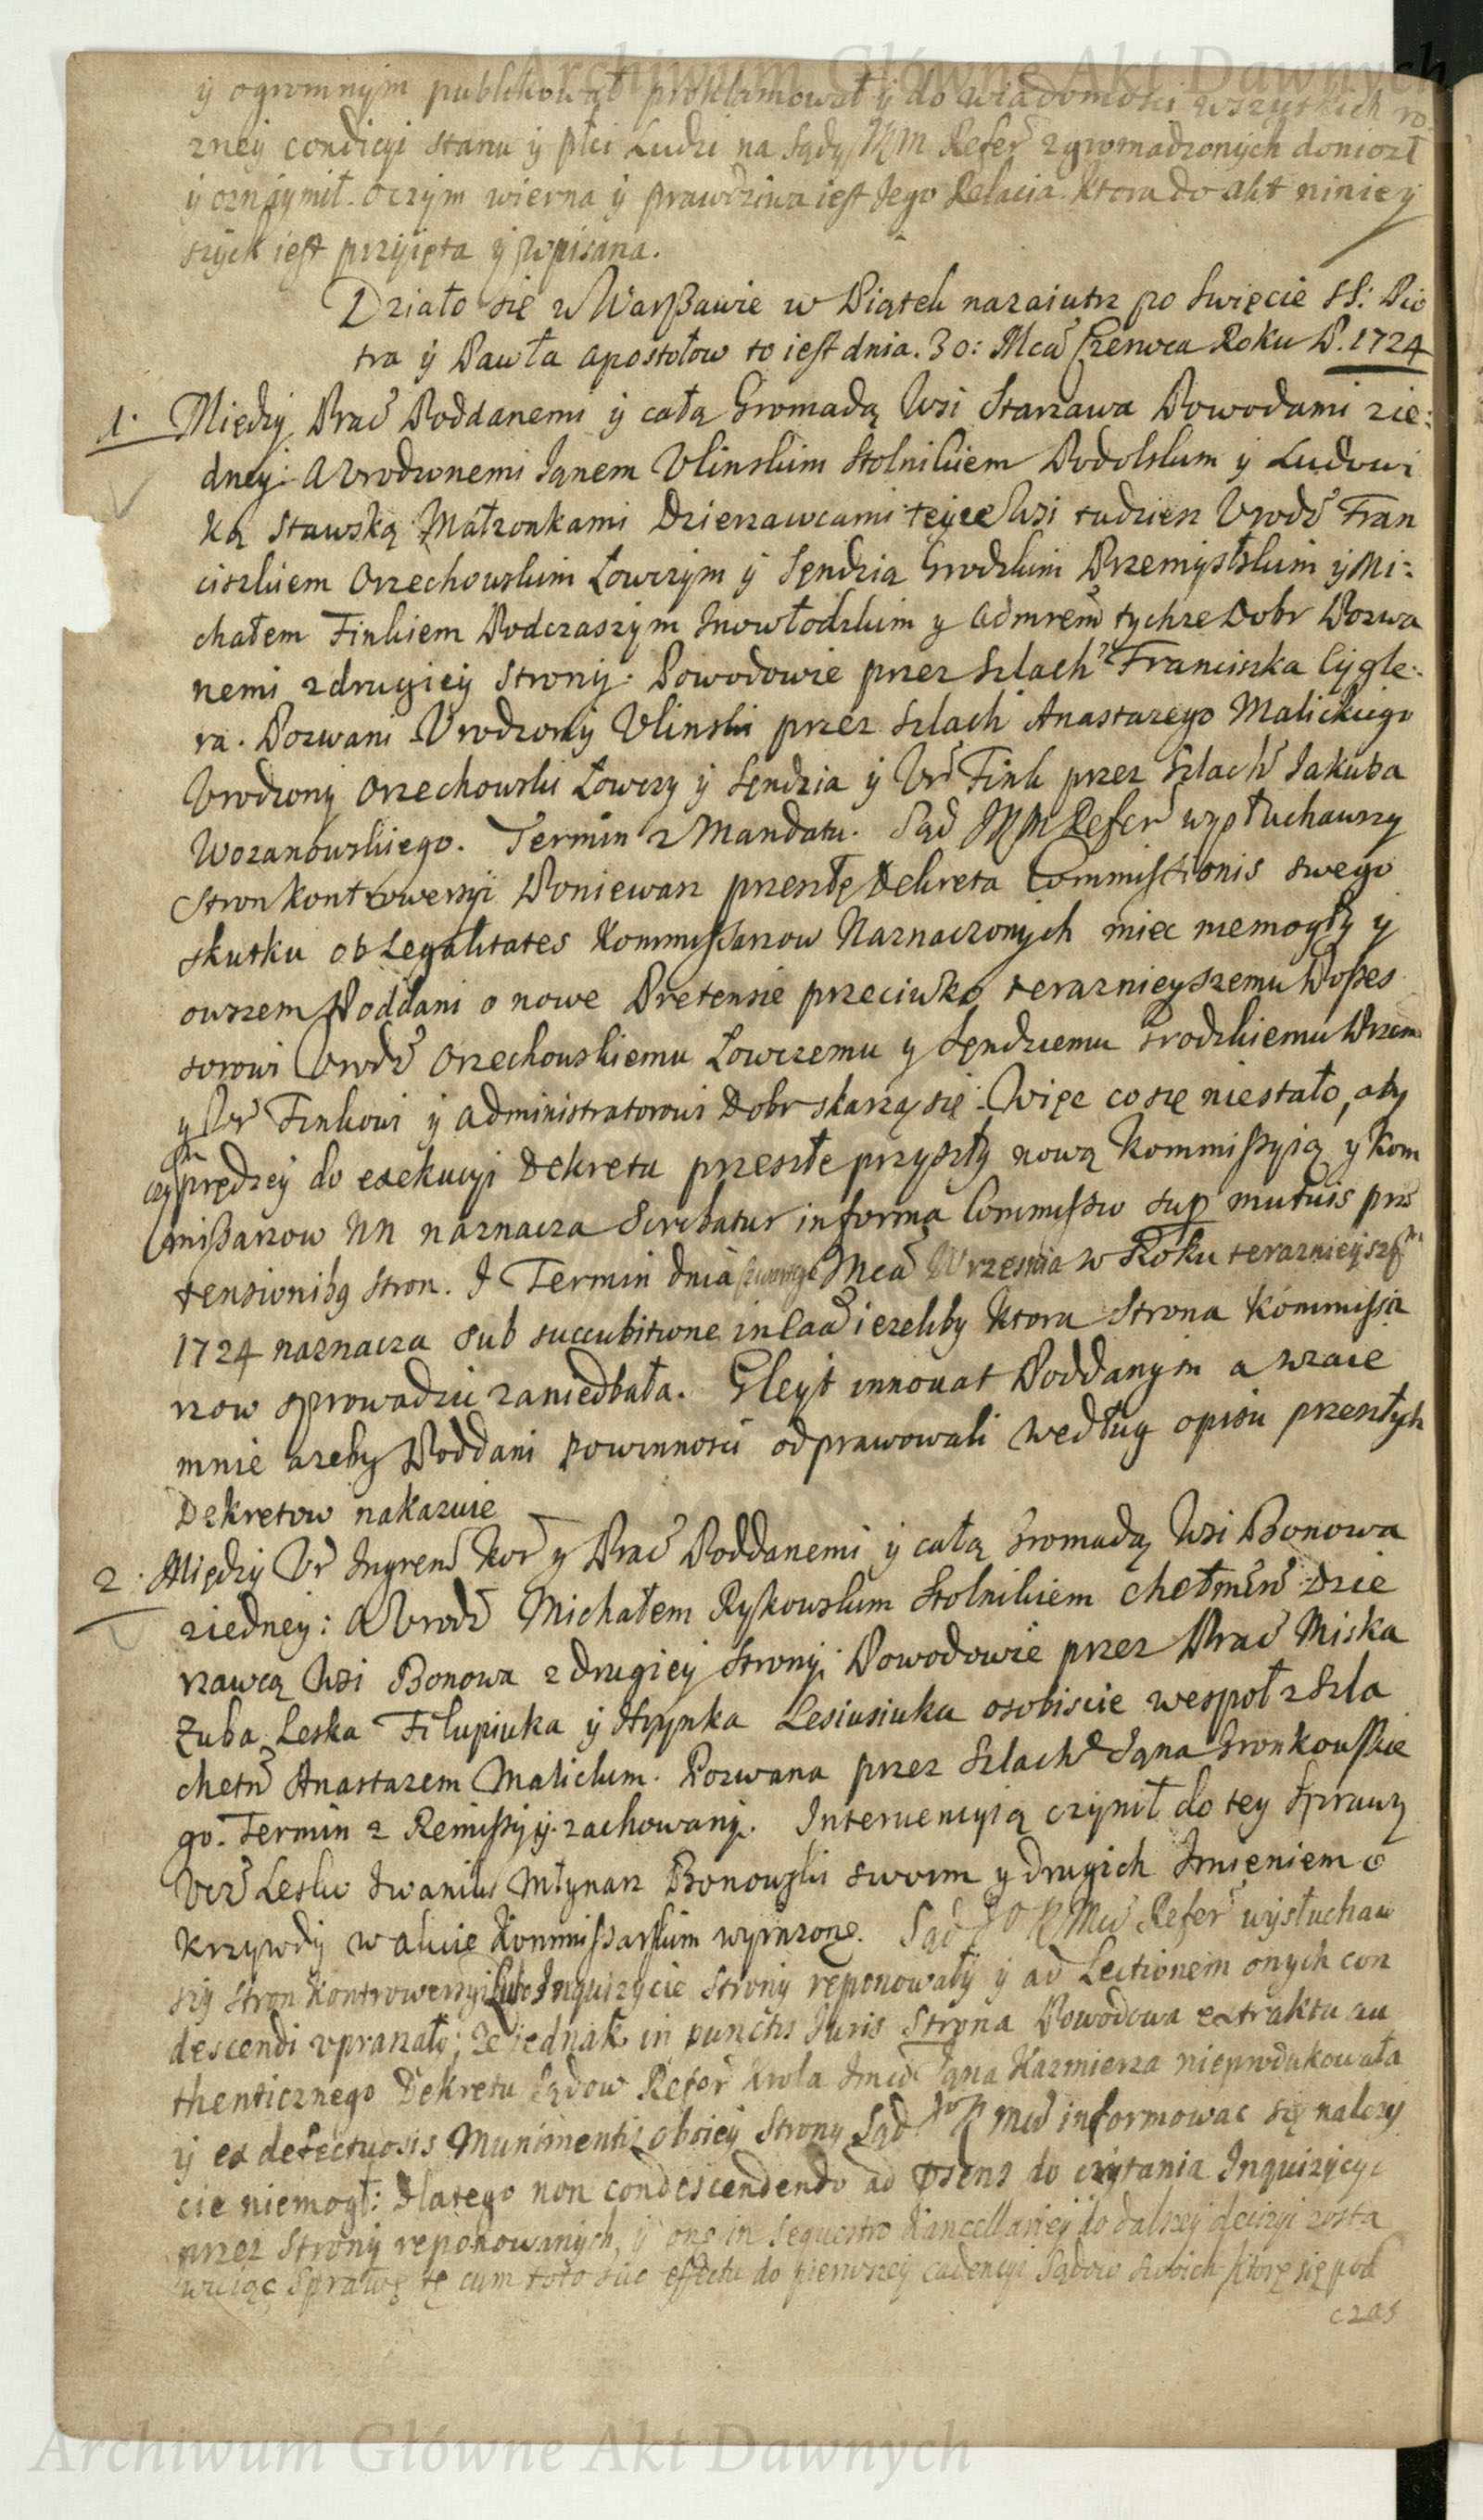 Archiwum Główne Akt Dawnych
y ogromnym publikował proklamował y do wiadomosci wszystkich ro
zney condicyi stanu y płci Ludzi na sądy JKM Refer zgromadzonych doniozł
y oznaymił. o czym wierna y prawdziwa iest Jego Relacia. Ktora do akt niniey
szych iest przyięta y wpisana.
Działo się w Warszawie w Piątek nazaiutrz po święcie SS: Pio
tra y Pawła apostołow to iest dnia. 30: Mca Czerwca Roku P. 1724
1. Między Prac Poddanemi y całą Gromadą Wsi Starzawa Powodami zie:
dney: a Urodzonemi Janem Ulinskim Stolnikiem Podolskim y Ludowi
ką Stawską Małzonkami Dzierzawcami teyze Wsi tudziesz Urodz Fran
ciszkiem Orzechowskim Łowczym y Sędzią Grodzkim Przemyslskim y Mi:
chałem Finkiem Podczaszym Inowłodzkim y admrem tychze Dobr Pozwa
nemi z drugiey strony. Powodowie przez Szlach Franciszka Cygle:
ra. Pozwani Urodzony Ulinski przez Szlach Anastazego Malickiego
Urodzony Orzechowski Łowczy y Sędzia y Ur Fink przez Szlach Jakuba
Wozanowskiego. Termin z Mandatu. Sąd JKM Refer wysłuchawszy
Stron kontrowersyi Poniewasz przeszłe Dekreta Commissionis swego
skutku ob Legalitates Kommissarzow Naznaczonych miec niemogły y
owszem Poddani o nowe Pretensie przeciwko teraznieyszemu Posses
sorowi Urodz Orzechowskiemu Łowczemu y Sędziemu Grodzkiemu Przem
y Ur Finkowi y administratorowi Dobr skarzą się. Więc co się niestało, aby
czym prędzey do exekucyi Dekreta przeszłe przyszły nową Kommissyią y Kom
missarzow NN naznacza Scribatur in forma Commissio sup mutuis prae
tensionibq stron. I Termin dnia czwartego Mca Wrzesnia w Roku teraznieyszym
1724 naznacza sub succubitione in Caa iezeliby Ktora Strona Kommissa
rzow sprowadzic zaniedbała. Gleyt innouat Poddanym a wzaie
mnie azeby Poddani powinnosci odprawowali według opisu przeszłych
Dekretow nakazuie
2. Między Ur Ingren Kor y Prac Poddanemi y całą Gromadą Wsi Bonowa
ziedney: a Urodz Michałem Ryskowskim Stolnikiem Chełmin Dzie
rzawcą Wsi Bonowa z drugiey strony. Powodowie przez Prac Miska
Zuba Leska Filipiuka y Hrynka Lesiusiuka osobiscie wespoł z Szla
chetn Anastazem Malickim. Pozwana przez Szlach Jana Gronkowskie
go. Termin z Remissyi zachowany. Interuencyią czynił do tey sprawy
Ucz Lesko Iwaniks Młynarz Bonowski swoim y drugich Imieniem o
krzywdy w akcie Kommissarskim wyrazone. Sąd JO KMci Refer wysłuchaw
szy stron kontrowersyi lubo Inquizycie strony reponowały y ad Lectionem onych con
descendi upraszały; Ze iednak in punctis Juris Strona Powodowa extraktu au
thenticznego Dekretu Sądow Refer Krola Jmci Jana Kazmierza nieprodukowała
y ex defectuosis Munimentis oboiey strony Sąd JO K Mci informowac się nalezy
cie niemogł: dlatego non condescendendo ad psens do czytania Inquizycyi
przez strony reponowanych, y one in sequestro Kancellariey do dalszey decizyi zosta
wuiąc sprawę tę cum toto suo effectu do pierwszey cadencyi Sądow swoich ktore się pod
czas
Archiwum Główne Akt Dawnych